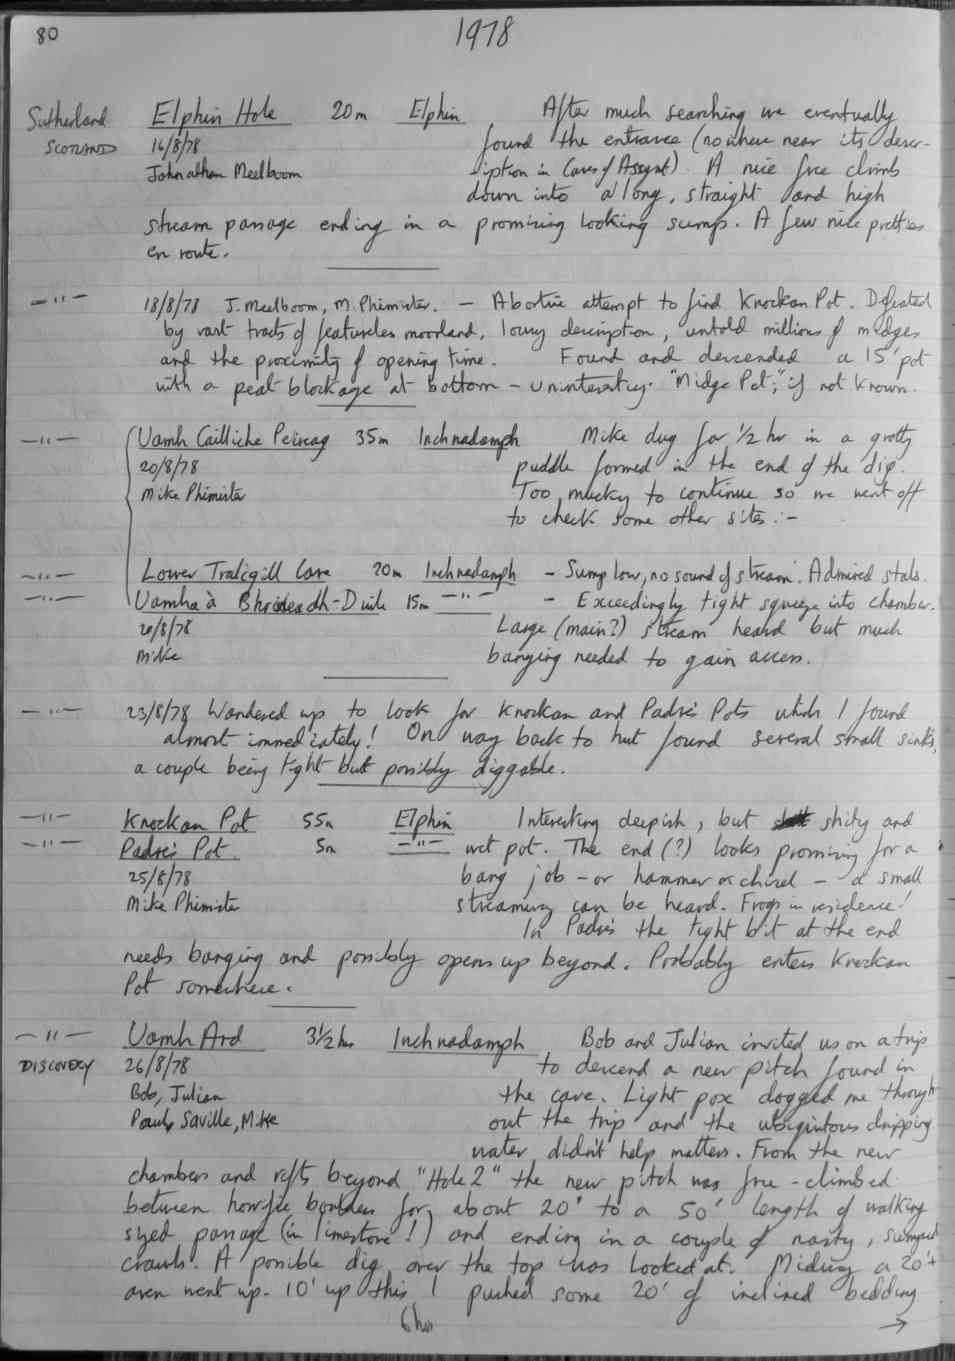 80
1978
Sutherland Elphin Hole 20m Elphin After much searching we eventually
SCOTLAND 16/8/78 found the entrance (nowhere near its descr-
Johnathan Meelboom iption in Caves of Assynt). A nice free climb
down into a long, straight and high
stream passage ending in a promising looking sump. A few nice pretties
en route.
—"— 18/8/78 J. Meelboom, M. Phimister. — Abortive attempt to find Knockan Pot. Defeated
by vast tracts of featureless moorland, lousy description, untold millions of midges
and the proximity of opening time. Found and descended a 15' pot
with a peat blockage at bottom - uninteresting. "Midge Pot", if not known.
—"— Uamh Cailliche Peireag 35m Inchnadamph Mike dug for 1/2 hr in a grotty
20/8/78 puddle formed in the end of the dig.
Mike Phimister Too mucky to continue so we went off
to check some other sites :-
—"— Lower Traligill Cave 20m Inchnadamph - Sump low, no sound of stream. Admired stals.
—"— Uamha à Bhrisdeadh-Duile 15m —"— - Exceedingly tight squeeze into chamber.
20/8/78 Large (main?) stream heard but much
Mike banging needed to gain access.
—"— 23/8/78 Wandered up to look for Knockan and Padre's Pots which I found
almost immediately! On way back to hut found several small sinks,
a couple being tight but possibly diggable.
—"— Knockan Pot 55m Elphin Interesting deepish, but shity and
—"— Padre's Pot 5m —"— wet pot. The end (?) looks promising for a
25/8/78 bang job - or hammer or chisel - a small
Mike Phimister streamway can be heard. Frogs in residence!
In Padre's the tight bit at the end
needs banging and possibly opens up beyond. Probably enters Knockan
Pot somewhere.
—"— Uamh Ard 3½ hrs Inchnadamph Bob and Julian invited us on a trip
DISCOVERY 26/8/78 to descend a new pitch found in
Bob, Julian the cave. Light pox dogged me through-
Paul, Saville, Mike out the trip and the ubiquitous dripping
water didn't help matters. From the new
chambers and rifts beyond "Hole 2" the new pitch was free-climbed
between horrific boulders for about 20' to a 50' length of walking
sized passage (in limestone!) and ending in a couple of nasty, sumped
crawls. A possible dig over the top was looked at. Midway a 20'+
aven went up. 10' up this I pushed some 20' of inclined bedding
6hrs →